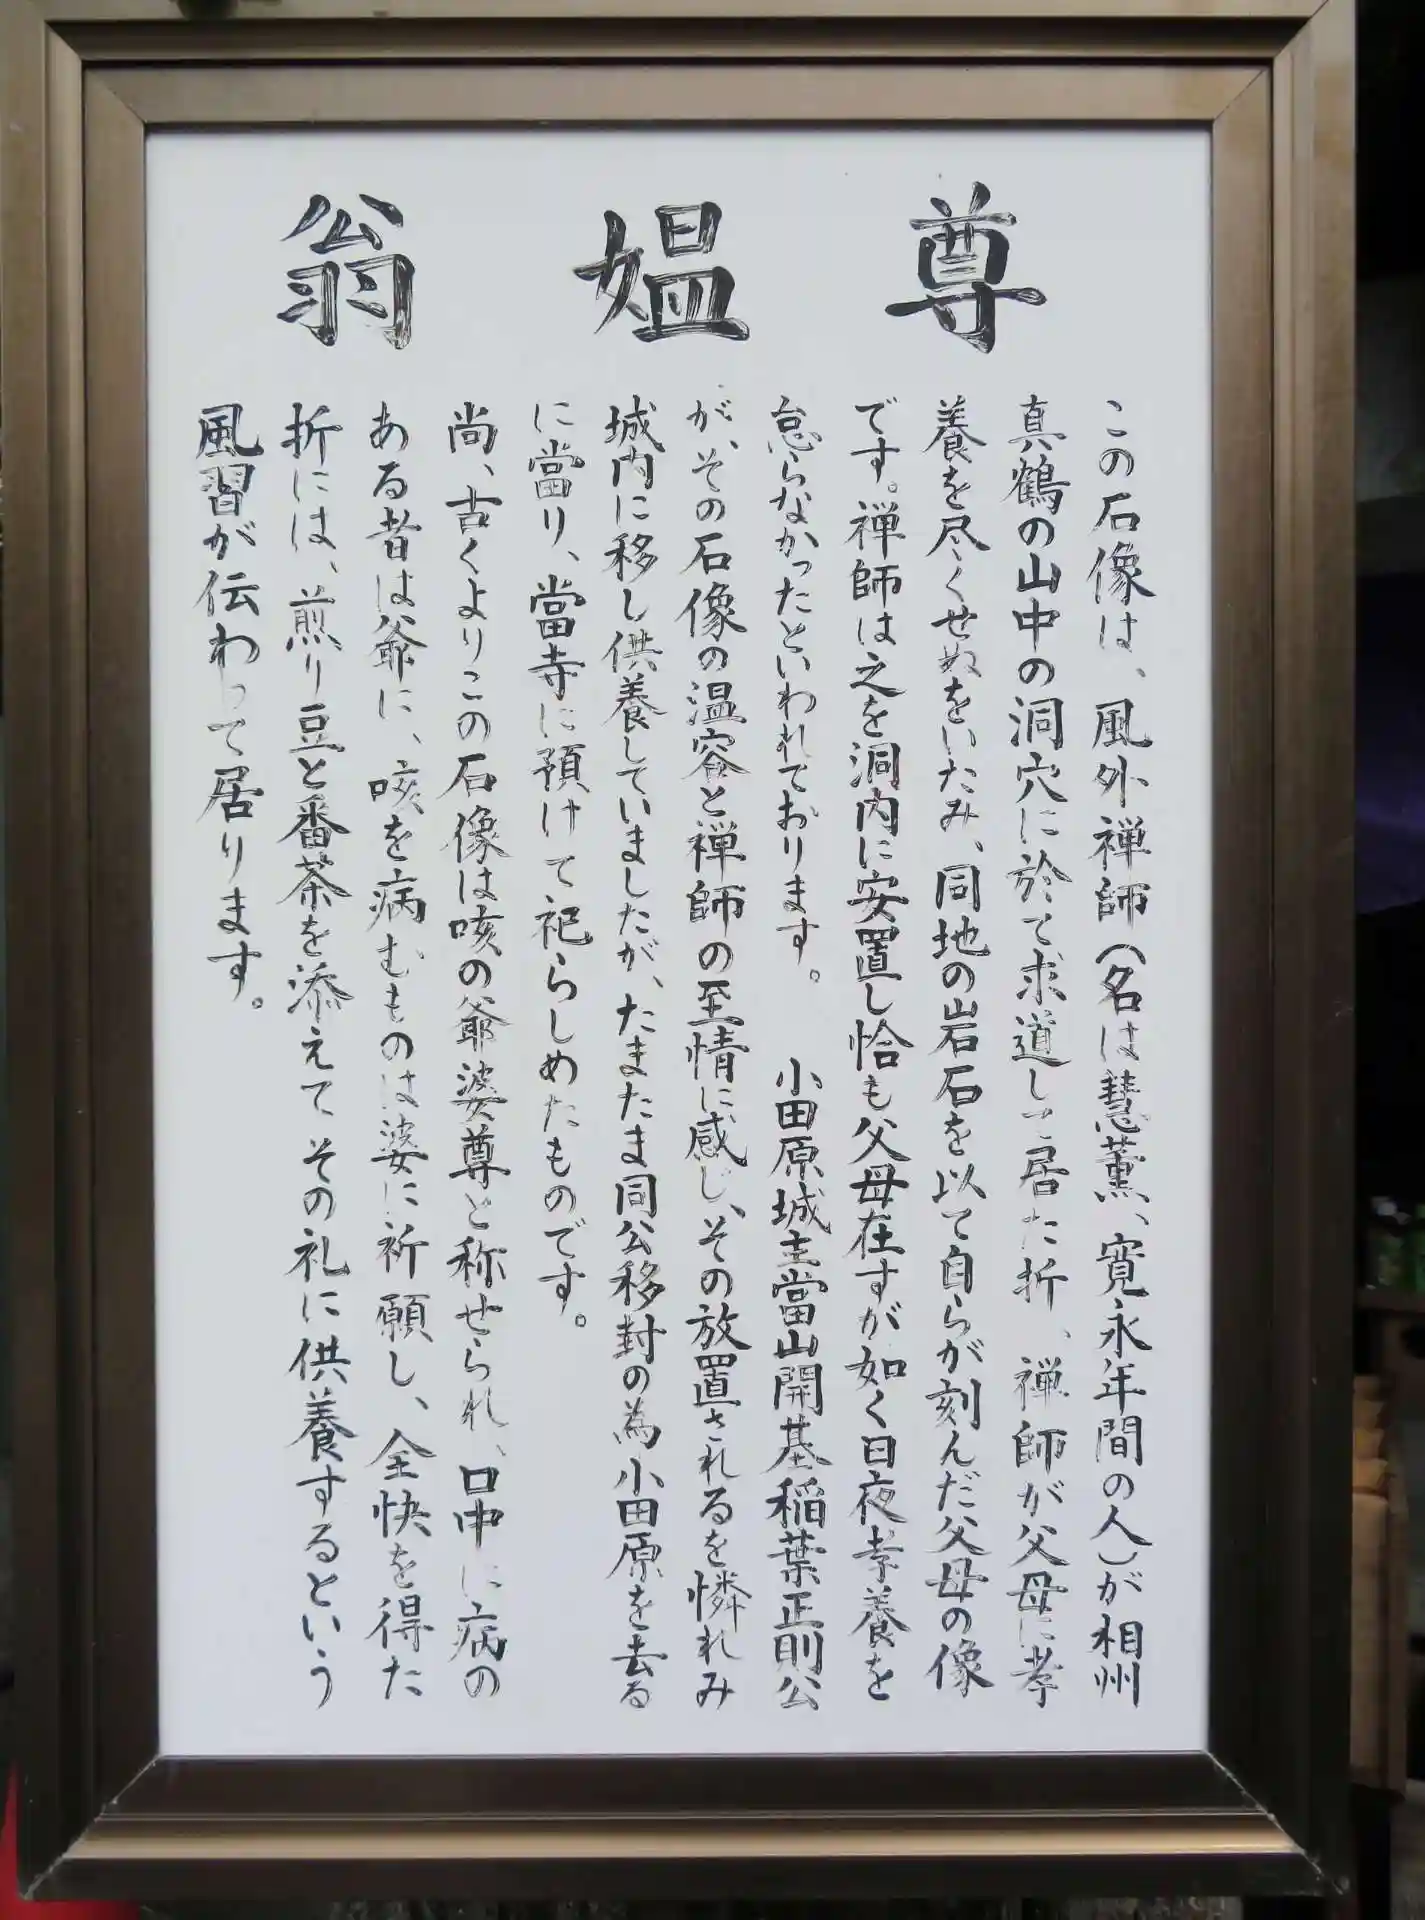 翁媼尊
この石像は、風外禅師(名は慧薫、寛永年間の人)が相州
真鶴の山中の洞穴に於て求道して居た折、禅師が父母に孝
養を尽くせぬをいたみ、同地の岩石を以て自らが刻んだ父母の像
です。禅師は之を洞内に安置し恰も父母在すが如く日夜孝養を
怠らなかったといわれております。 小田原城主當山開基稲葉正則公
が、その石像の温容と禅師の至情に感じ、その放置されるを憐れみ
城内に移し供養していましたが、たまたま同公移封の為小田原を去る
に當り、當寺に預けて祀らしめたものです。
尚、古くよりこの石像は咳の爺婆尊と称せられ、口中に病の
ある者は爺に、咳を病むものは婆に祈願し、全快を得た
折には、煎り豆と番茶を添えてその礼に供養するという
風習が伝わって居ります。